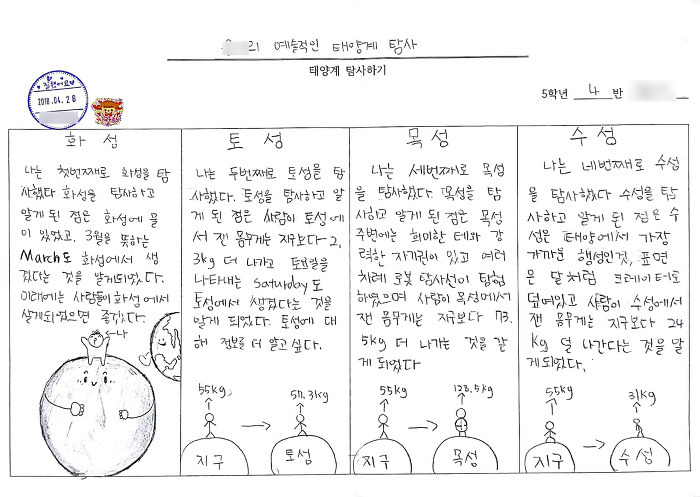 21 예술적인 태양계 탐사
태양계 탐사하기
참 잘했어요
2018.04.26
5학년 4 반
화 성
나는 첫번째로 화성을 탐
사했다 화성을 탐사하고
알게 된 점은 화성에 물
이 있었고, 3월을 뜻하는
March도 화성에서 생
겼다는 것을 알게되었다.
미래에는 사람들이 화성에서
살게되었으면 좋겠다.
나
토 성
나는 두번째로 토성을 탐
사했다. 토성을 탐사하고 알
게 된 점은 사람이 토성에
서 잰 몸무게는 지구보다 2.
3kg 더 나가고 토요일을
나타내는 Saturday도
토성에서 생겼다는 것을
알게 되었다. 토성에 대
해 정보를 더 알고 싶다.
55kg
57.3kg
지구
토성
목 성
나는 세번째로 목성
을 탐사했다. 목성을 탐
사하고 알게 된 점은 목성
주변에는 희미한 테와 강
력한 자기권이 있고 여러
차례 로봇 탐사선이 탐험
하였으며 사람이 목성에서
잰 몸무게는 지구보다 73.
5kg 더 나가는 것을 알
게 되었다
55kg
128.5kg
지구
목성
수 성
나는 네번째로 수성
을 탐사했다 수성을 탐
사하고 알게 된 점은 수
성은 태양에서 가장
가까운 행성인것, 표면
은 달처럼 크레이터로
덮여있고 사람이 수성에서
잰 몸무게는 지구보다 24
kg 덜 나간다는 것을 알
게되었다.
55kg
31kg
지구
수성